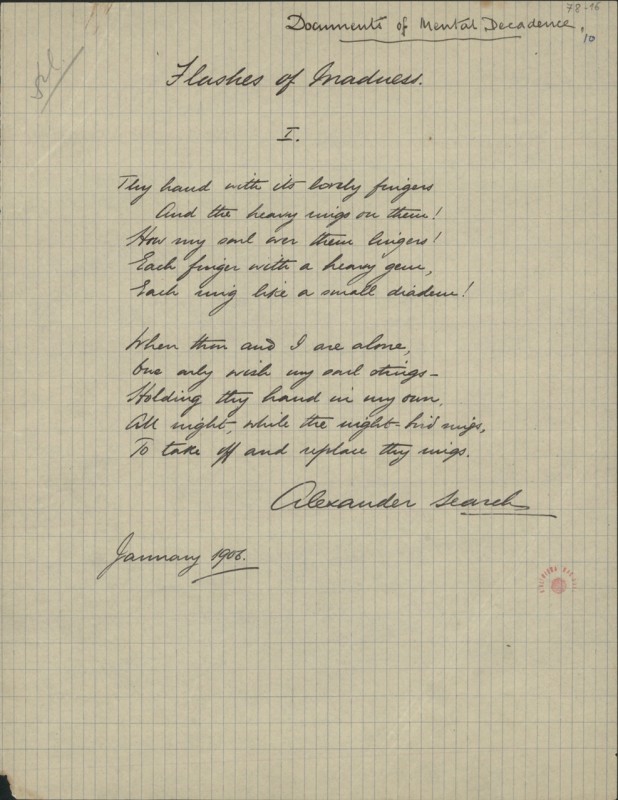 78-16
Documents of Mental Decadence.
10
Flashes of Madness.
I.
Thy hand with its lovely fingers
And the heavy rings on them!
How my soul over them lingers!
Each finger with a heavy gem,
Each ring like a small diadem!
When thou and I are alone,
One only wish my soul stings—
Holding thy hand in my own,
All night, while the night-bird sings,
To take off and replace thy rings.
Alexander Search
January 1906.